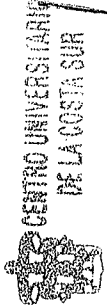 CENTRO UNIVERSITARIO
DE LA COSTA SUR